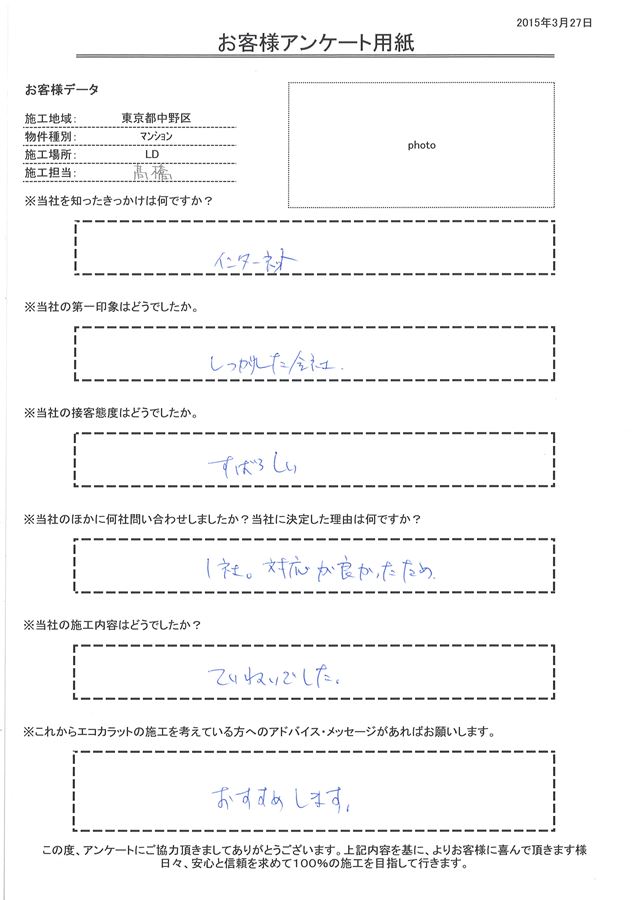 2015年3月27日
お客様アンケート用紙
お客様データ
施工地域： 東京都中野区
物件種別： マンション
施工場所： LD
施工担当： 高橋
photo
※当社を知ったきっかけは何ですか？
インターネット
※当社の第一印象はどうでしたか。
しっかりした会社.
※当社の接客態度はどうでしたか。
すばらしい
※当社のほかに何社問い合わせしましたか？当社に決定した理由は何ですか？
1社。対応が良かったため.
※当社の施工内容はどうでしたか？
ていねいでした。
※これからエコカラットの施工を考えている方へのアドバイス・メッセージがあればお願いします。
おすすめします。
この度、アンケートにご協力頂きましてありがとうございます。上記内容を基に、よりお客様に喜んで頂きます様
日々、安心と信頼を求めて100%の施工を目指して行きます。